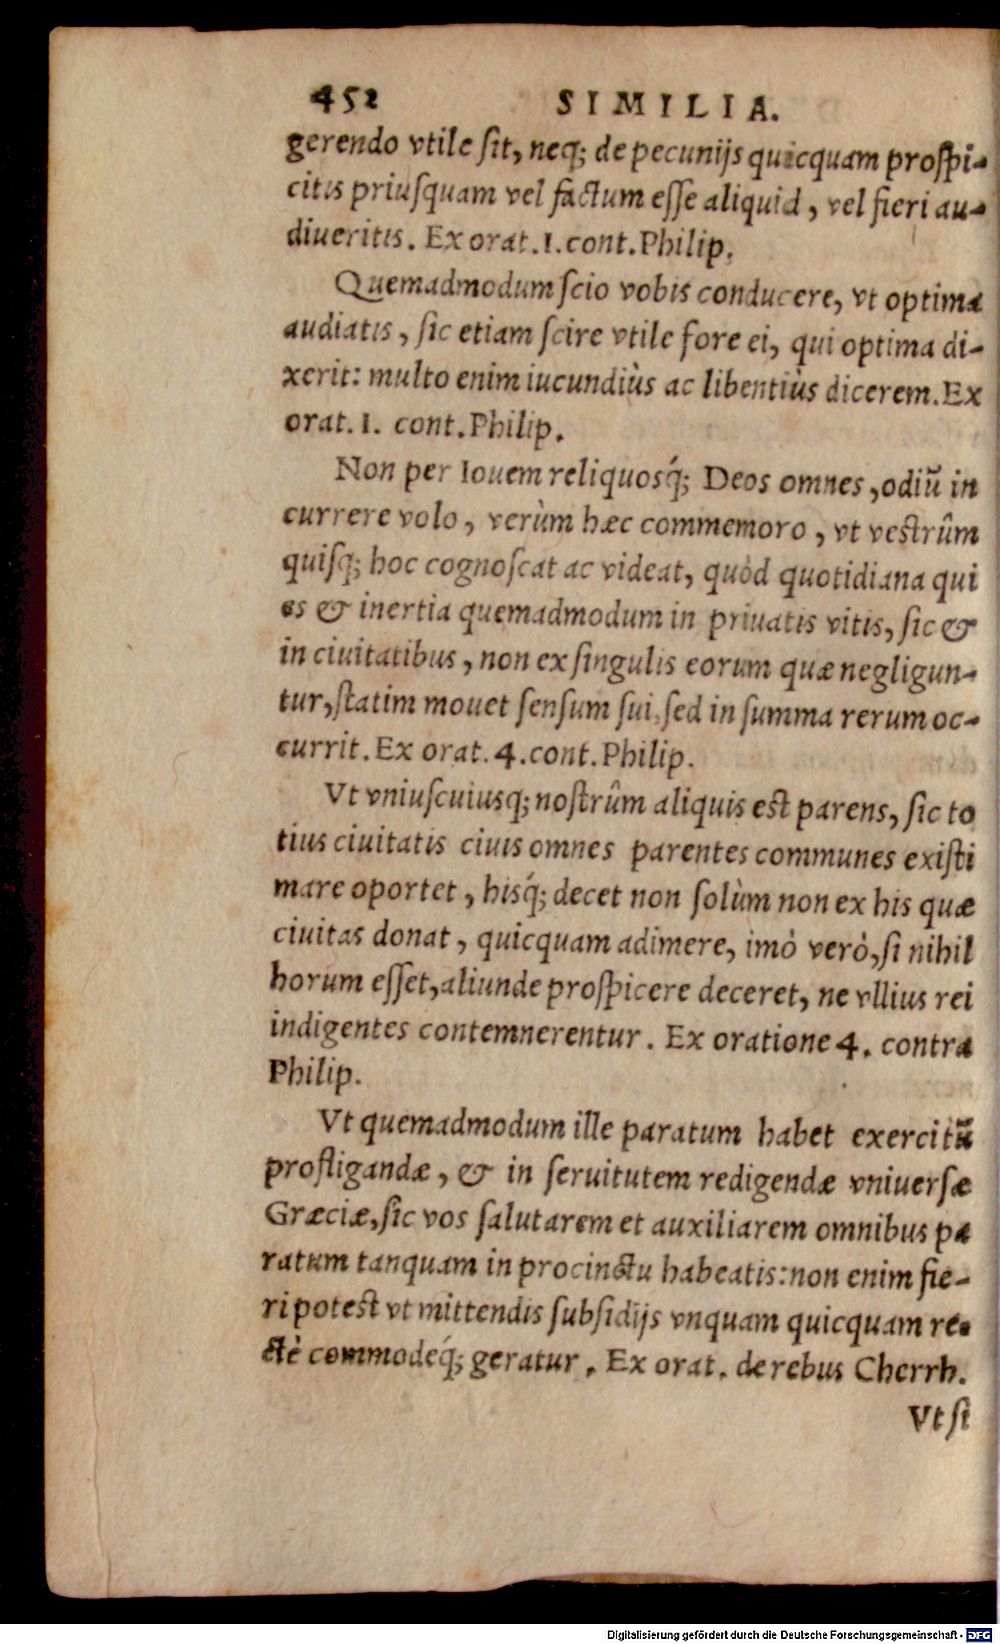 452 SIMILIA.
gerendo vtile ſit, neq; de pecunijs quicquam proſpi-
citis priuſquam vel factum eſſe aliquid, vel fieri au-
diueritis. Ex orat. 1. cont. Philip.
Quemadmodum ſcio vobis conducere, vt optima
audiatis, ſic etiam ſcire vtile fore ei, qui optima di-
xerit: multo enim iucundiùs ac libentiùs dicerem. Ex
orat. 1. cont. Philip.
Non per Iouem reliquosq́; Deos omnes, odiũ in
currere volo, verùm hæc commemoro, vt veſtrûm
quiſq; hoc cognoſcat ac videat, quòd quotidiana qui
es & inertia quemadmodum in priuatis vitis, ſic &
in ciuitatibus, non ex ſingulis eorum quæ negligun-
tur, ſtatim mouet ſenſum ſui, ſed in ſumma rerum oc-
currit. Ex orat. 4. cont. Philip.
Vt vniuſcuiusq; noſtrûm aliquis est parens, ſic to
tius ciuitatis ciuis omnes parentes communes exiſti
mare oportet, hisq́; decet non ſolùm non ex his quæ
ciuitas donat, quicquam adimere, imò verò, ſi nihil
horum eſſet, aliunde proſpicere deceret, ne vllius rei
indigentes contemnerentur. Ex oratione 4. contra
Philip.
Vt quemadmodum ille paratum habet exercitũ
profligandæ, & in ſeruitutem redigendæ vniuerſæ
Græciæ, ſic vos ſalutarem et auxiliarem omnibus pa
ratum tanquam in procinctu habeatis: non enim fie-
ri poteſt vt mittendis ſubſidijs vnquam quicquam re-
ctè commodeq́; geratur. Ex orat. de rebus Cherrh.
Vt ſi
Digitalisierung gefördert durch die Deutsche Forschungsgemeinschaft - DFG